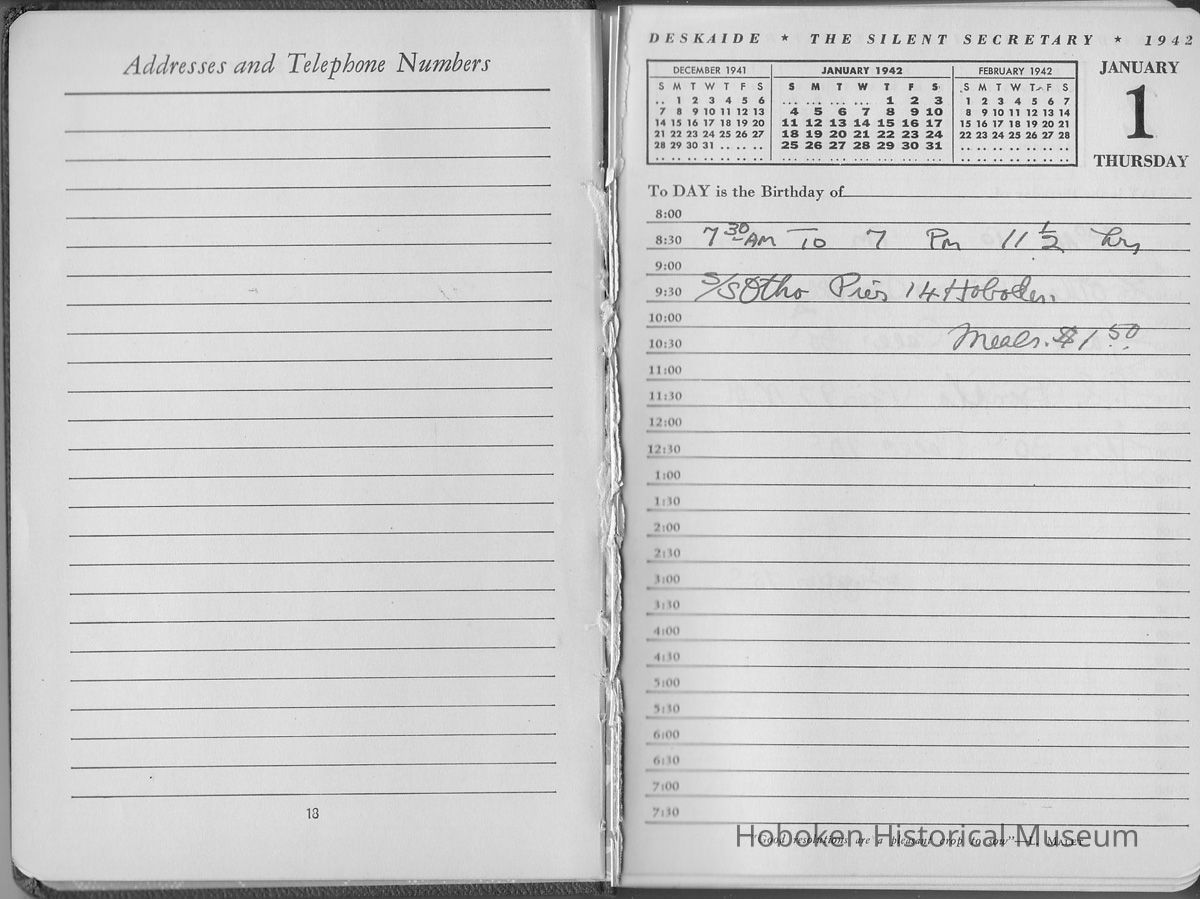 Addresses and Telephone Numbers
18
DESKAIDE * THE SILENT SECRETARY * 1942
DECEMBER 1941
S M T W T F S
.. 1 2 3 4 5 6
7 8 9 10 11 12 13
14 15 16 17 18 19 20
21 22 23 24 25 26 27
28 29 30 31 .. .. ..
.. .. .. .. .. .. ..
JANUARY 1942
S M T W T F S
... ... ... ... 1 2 3
4 5 6 7 8 9 10
11 12 13 14 15 16 17
18 19 20 21 22 23 24
25 26 27 28 29 30 31
... ... ... ... ... ... ...
FEBRUARY 1942
S M T W T F S
1 2 3 4 5 6 7
8 9 10 11 12 13 14
15 16 17 18 19 20 21
22 23 24 25 26 27 28
.. .. .. .. .. .. ..
.. .. .. .. .. .. ..
JANUARY
1
THURSDAY
To DAY is the Birthday of
8:00
8:30 7 30 AM To 7 Pm 11 1/2 hrs
9:00
9:30 S/S Otho Pier 14 Hoboken.
10:00
10:30 Meals. $1 50
11:00
11:30
12:00
12:30
1:00
1:30
2:00
2:30
3:00
3:30
4:00
4:30
5:00
5:30
6:00
6:30
7:00
7:30
"Good resolutions are a pleasant crop to sow"—L. MALET
Hoboken Historical Museum